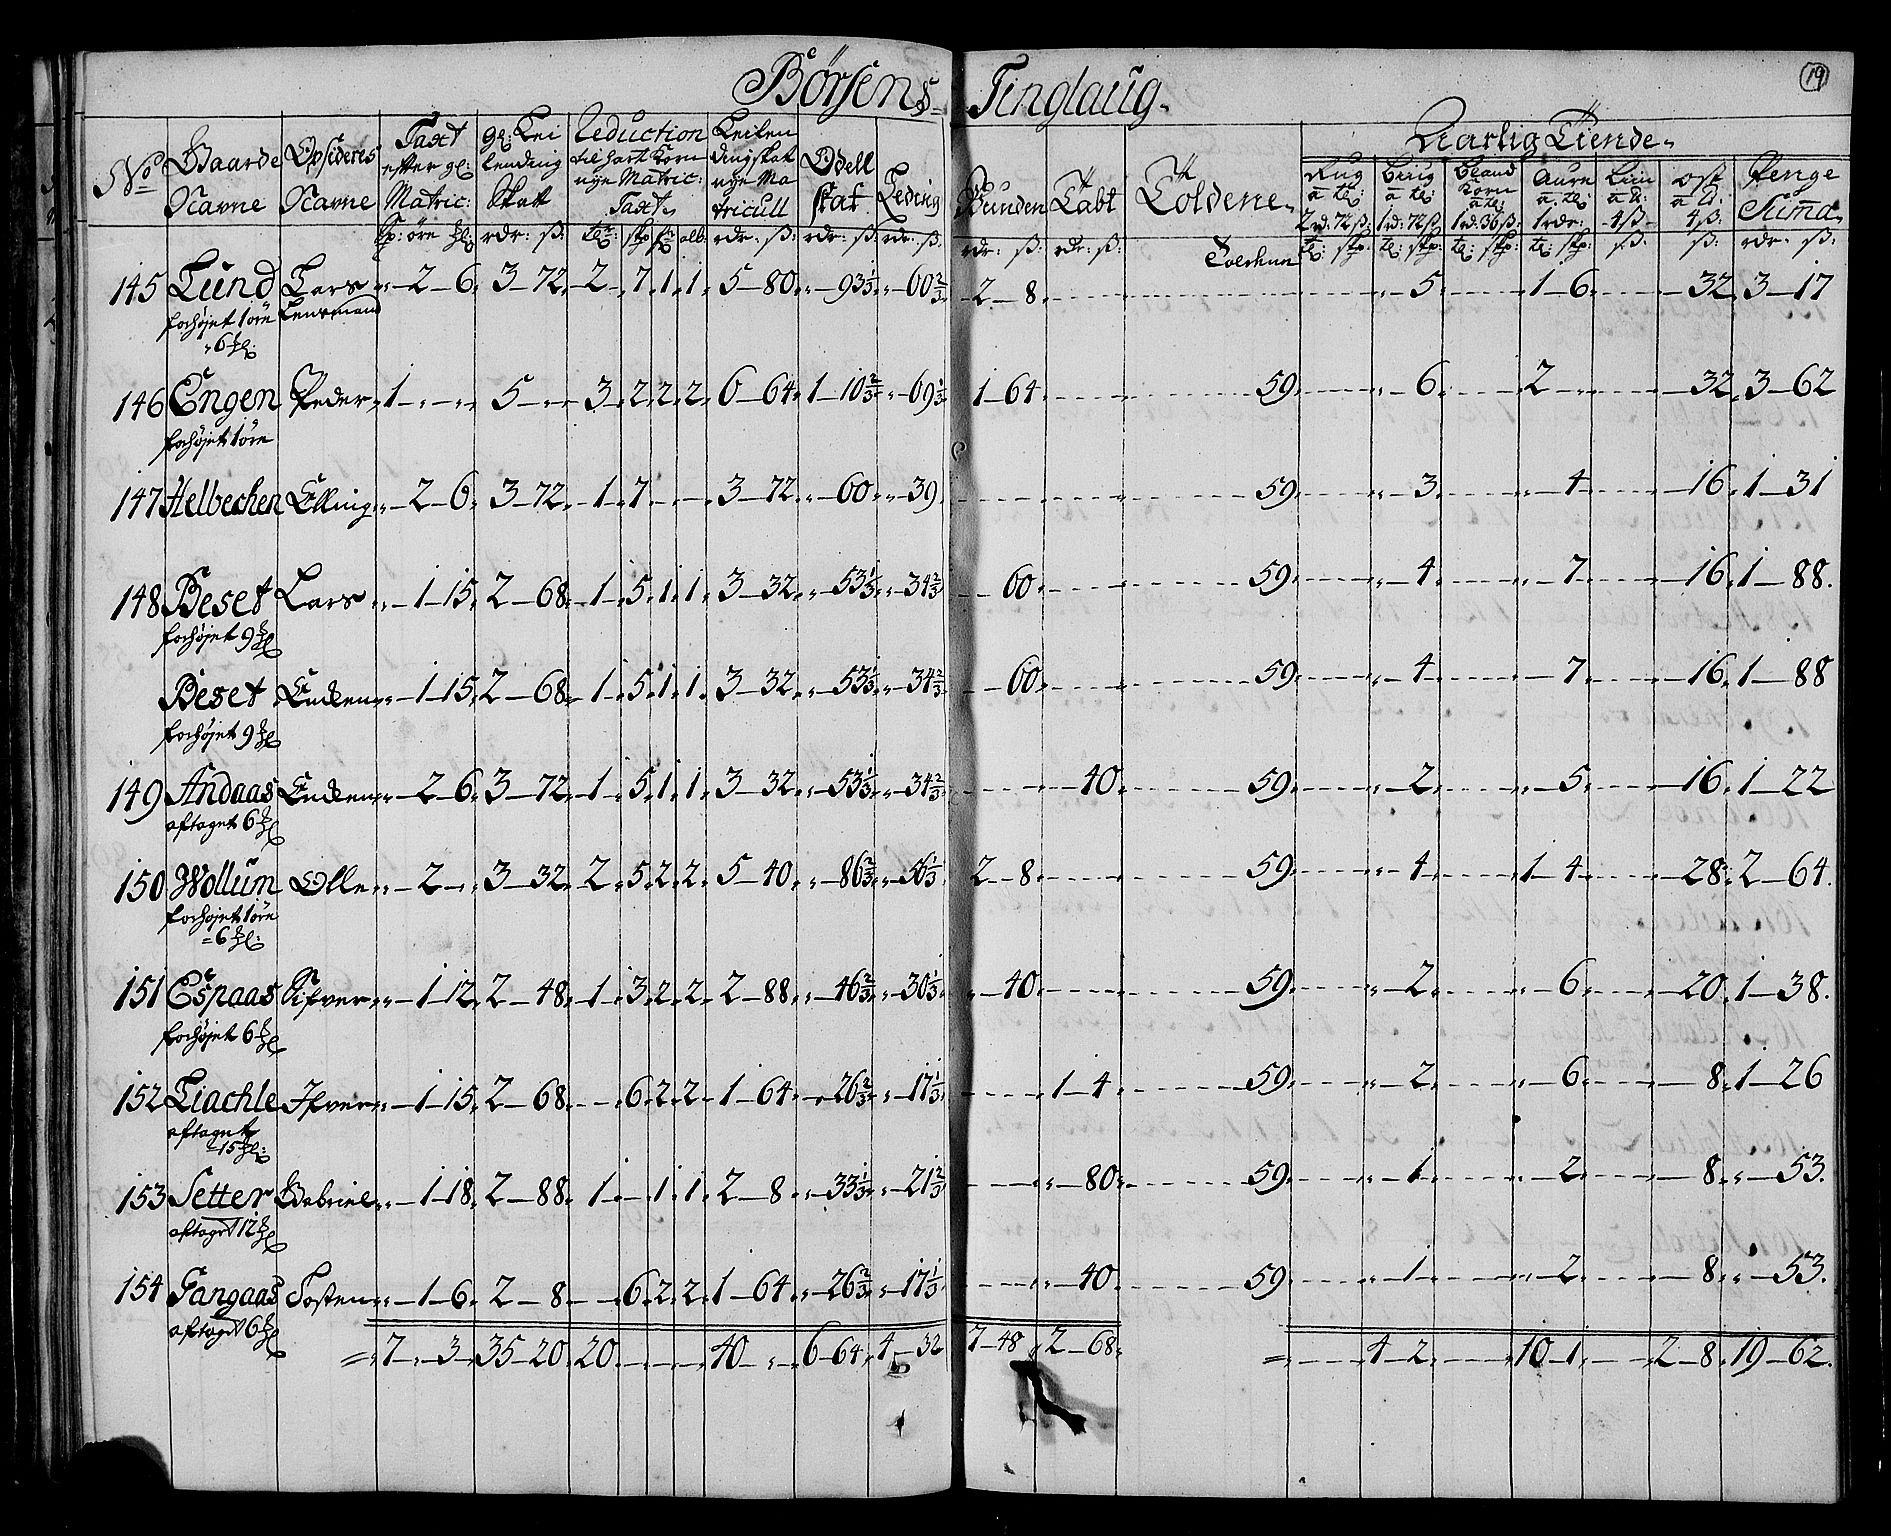 Börsens Tinglaug.
19
No Gaarde Nafne Opsideres Nafne Taxt efter gl: Matric: gl: Leilending Skatt Reduction til hart Korn nye Matric: Taxt Leilendingskat nye Matricull Odell skat Leding Bunden Tabt Toldene Aarlig Tiende
Rug a te: 2 rd: 72 ß: Biug a te: 1 rd: 72 ß Bland Korn a te: 1 rd: 36 ß: Aure a te: 1 rdr: Liin a 4 ß ost a 4 ß: Penge Suma
145 Lund Lars 2 6 3 72 2 7 1 1 5 80 93 1/3 60 2/3 2 8 5 1 6 32 3 17
forhøjet 1 öre Lensmand
6
146 Engen Peder 1 5 3 2 2 2 6 64 1 10 2/3 69 1/3 1 64 59 6 2 32 3 62
forhøjet 1 öre
147 Helbechen Elling 2 6 3 72 1 7 3 72 60 39 59 3 4 16 1 31
148 Beset Lars 1 15 2 68 1 5 1 1 3 32 53 1/3 34 2/3 60 59 4 7 16 1 88.
forhøjet 9
Beset 1 15 2 68 1 5 1 1 3 32 53 1/3 34 2/3 60 59 4 7 16 1 88
forhøjet 9
149 Andaas 2 6 3 72 1 5 1 1 3 32 53 1/3 34 2/3 40 59 2 5 16 1 22
aftaget 6
150 Wollum Olle 2 3 32 2 5 2 2 5 40 86 2/3 56 1/3 2 8 59 4 1 4 28 2 64.
forhøjet 1 öre
6
151 Espaas Sifver 1 12 2 48 1 3 2 2 2 88 46 2/3 30 1/3 40 59 2 6 20 1 38.
forhøjet 6
152 Liachle Ifver 1 15 2 68 6 2 2 1 64 26 2/3 17 1/3 1 4 59 2 6 8 1 26
aftaget
15
153 Setter Gabriel 1 18 2 88 1 1 1 2 8 33 1/3 21 2/3 80 59 1 2 8 53.
aftaget 12
154 Gangaas Tosten 1 6 2 8 6 2 2 1 64 26 2/3 17 1/3 40 59 1 2 8 53.
aftaget 6
7 3 35 20 20 40 6 64 4 32 7 48 2 68 4 2 10 1 2 8 19 62.